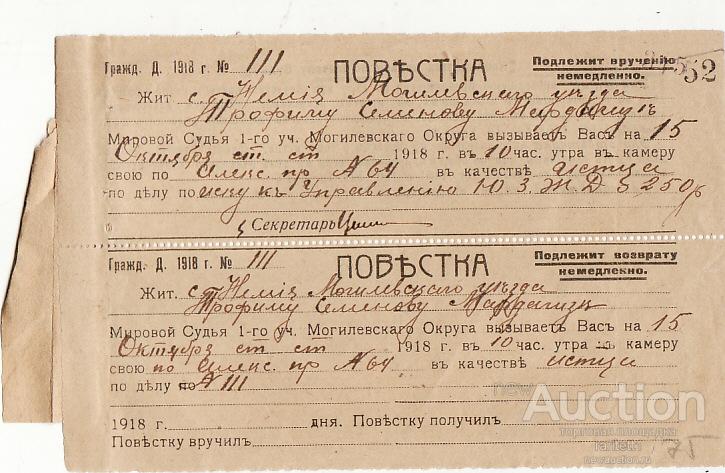 Гражд. Д. 1918 г. № 111
ПОВѢСТКА
Подлежит вручению
немедленно.
52
Жит с. Немія Могилевскаго уѣзда
Трофиму Семенову
Мировой Судья 1-го уч. Могилевскаго Округа вызываетъ Васъ на 15
Октября ст. ст 1918 г. въ 10 час. утра въ камеру
свою по Алекс. пр № 64 въ качествѣ истца
по дѣлу по иску къ Управленію Ю. З. Ж. Д. 250 р
Секретарь
Гражд. Д. 1918 г. № 111
ПОВѢСТКА
Подлежит возврату
немедленно.
Жит. с. Немія Могилевскаго уѣзда
Трофиму Семенову
Мировой Судья 1-го уч. Могилевскаго Округа вызываетъ Васъ на 15
Октября ст ст 1918 г. въ 10 час. утра въ камеру
свою по Алекс. пр № 64 въ качествѣ истца
по дѣлу № 111
1918 г. дня. Повѣстку получил
Повѣстку вручил
75
newAuction
торговая площадка
raritetm
newauction.ru